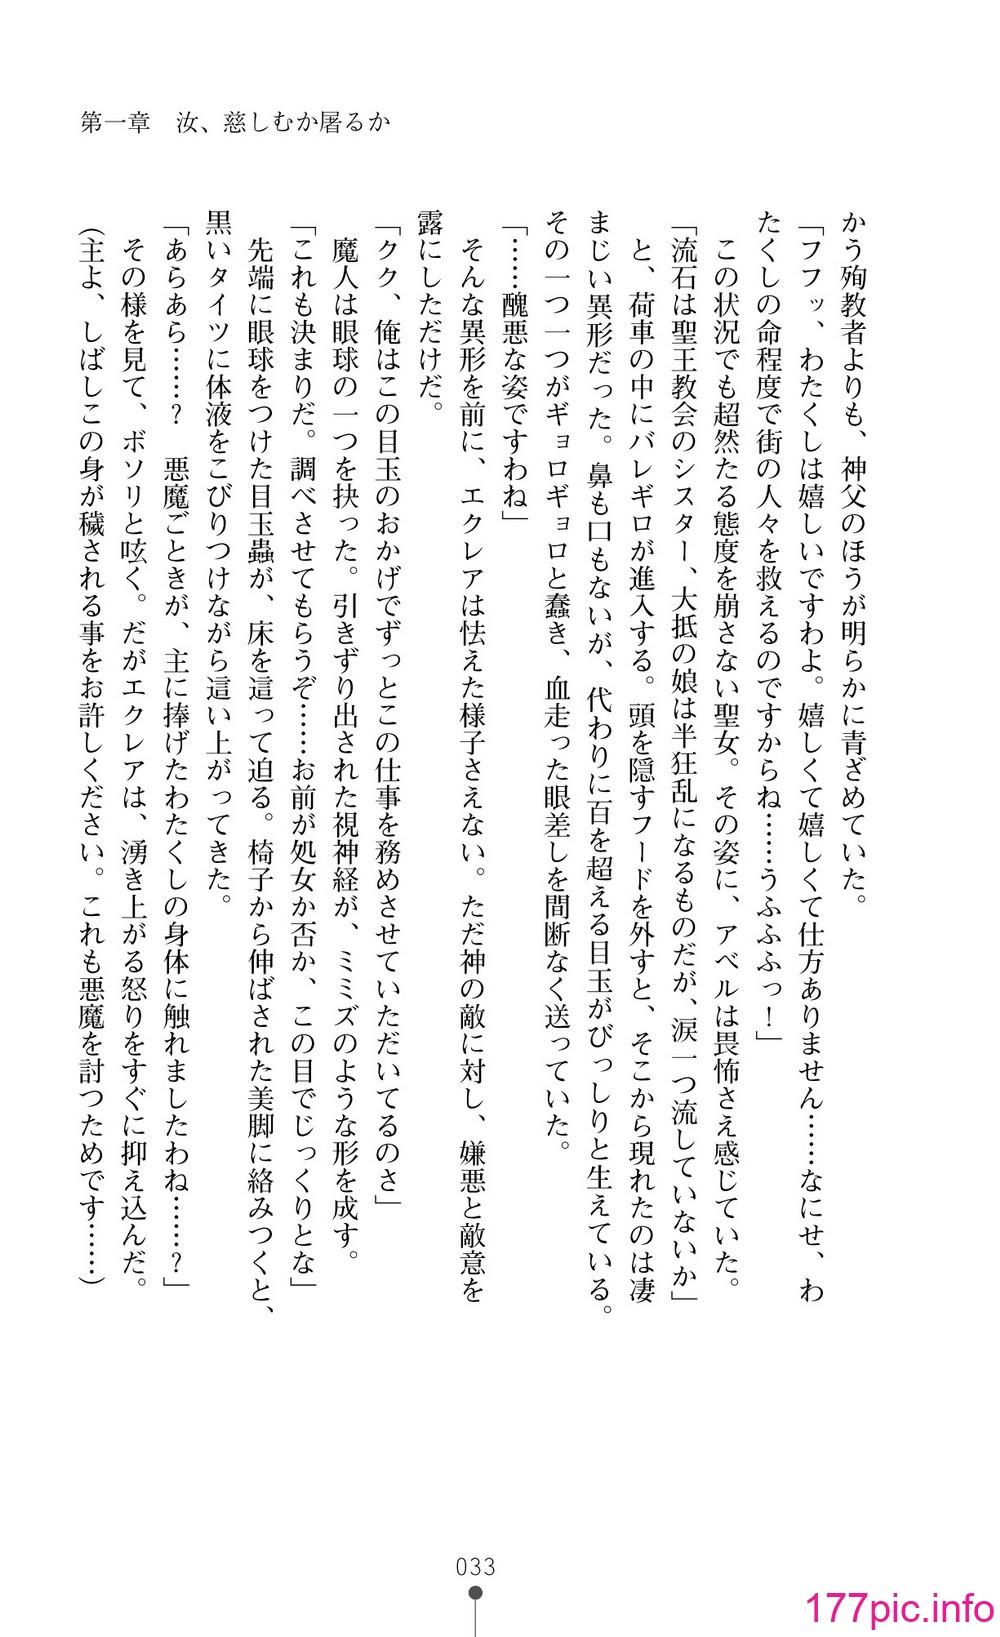 第一章　汝、慈しむか屠るか
かう殉教者よりも、神父のほうが明らかに青ざめていた。
「フフッ、わたくしは嬉しいですわよ。嬉しくて嬉しくて仕方ありません……なにせ、わ
たくしの命程度で街の人々を救えるのですからね……うふふふっ！」
　この状況でも超然たる態度を崩さない聖女。その姿に、アベルは畏怖さえ感じていた。
「流石は聖王教会のシスター、大抵の娘は半狂乱になるものだが、涙一つ流していないか」
　と、荷車の中にバレギロが進入する。頭を隠すフードを外すと、そこから現れたのは凄
まじい異形だった。鼻も口もないが、代わりに百を超える目玉がびっしりと生えている。
その一つ一つがギョロギョロと蠢き、血走った眼差しを間断なく送っていた。
「……醜悪な姿ですわね」
　そんな異形を前に、エクレアは怯えた様子さえない。ただ神の敵に対し、嫌悪と敵意を
露にしただけだ。
「クク、俺はこの目玉のおかげでずっとこの仕事を務めさせていただいてるのさ」
　魔人は眼球の一つを抉った。引きずり出された視神経が、ミミズのような形を成す。
「これも決まりだ。調べさせてもらうぞ……お前が処女か否か、この目でじっくりとな」
　先端に眼球をつけた目玉蟲が、床を這って迫る。椅子から伸ばされた美脚に絡みつくと、
黒いタイツに体液をこびりつけながら這い上がってきた。
「あらあら……？　悪魔ごときが、主に捧げたわたくしの身体に触れましたわね……？」
　その様を見て、ボソリと呟く。だがエクレアは、湧き上がる怒りをすぐに抑え込んだ。
（主よ、しばしこの身が穢される事をお許しください。これも悪魔を討つためです……）
033
177pic.info